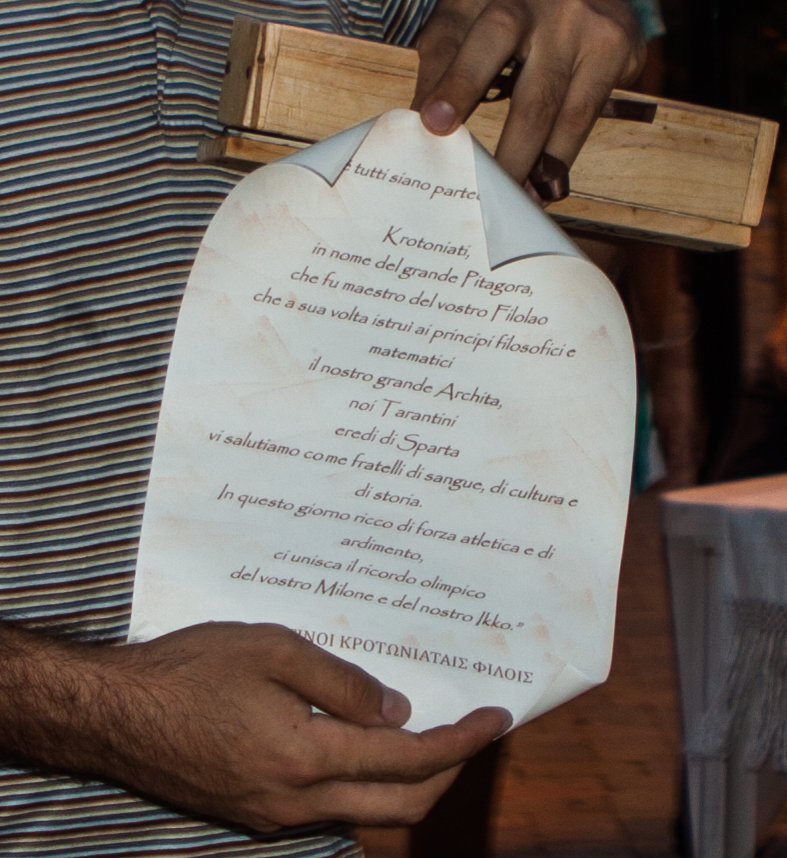 tutti siano parte
Krotoniati,
in nome del grande Pitagora,
che fu maestro del vostro Filolao
che a sua volta istruì ai principi filosofici e
matematici
il nostro grande Archita,
noi Tarantini
eredi di Sparta
vi salutiamo come fratelli di sangue, di cultura e
di storia.
In questo giorno ricco di forza atletica e di
ardimento,
ci unisca il ricordo olimpico
del vostro Milone e del nostro Ikko."
ΚΡΟΤΩΝΙΑΤΑΙΣ ΦΙΛΟΙΣ